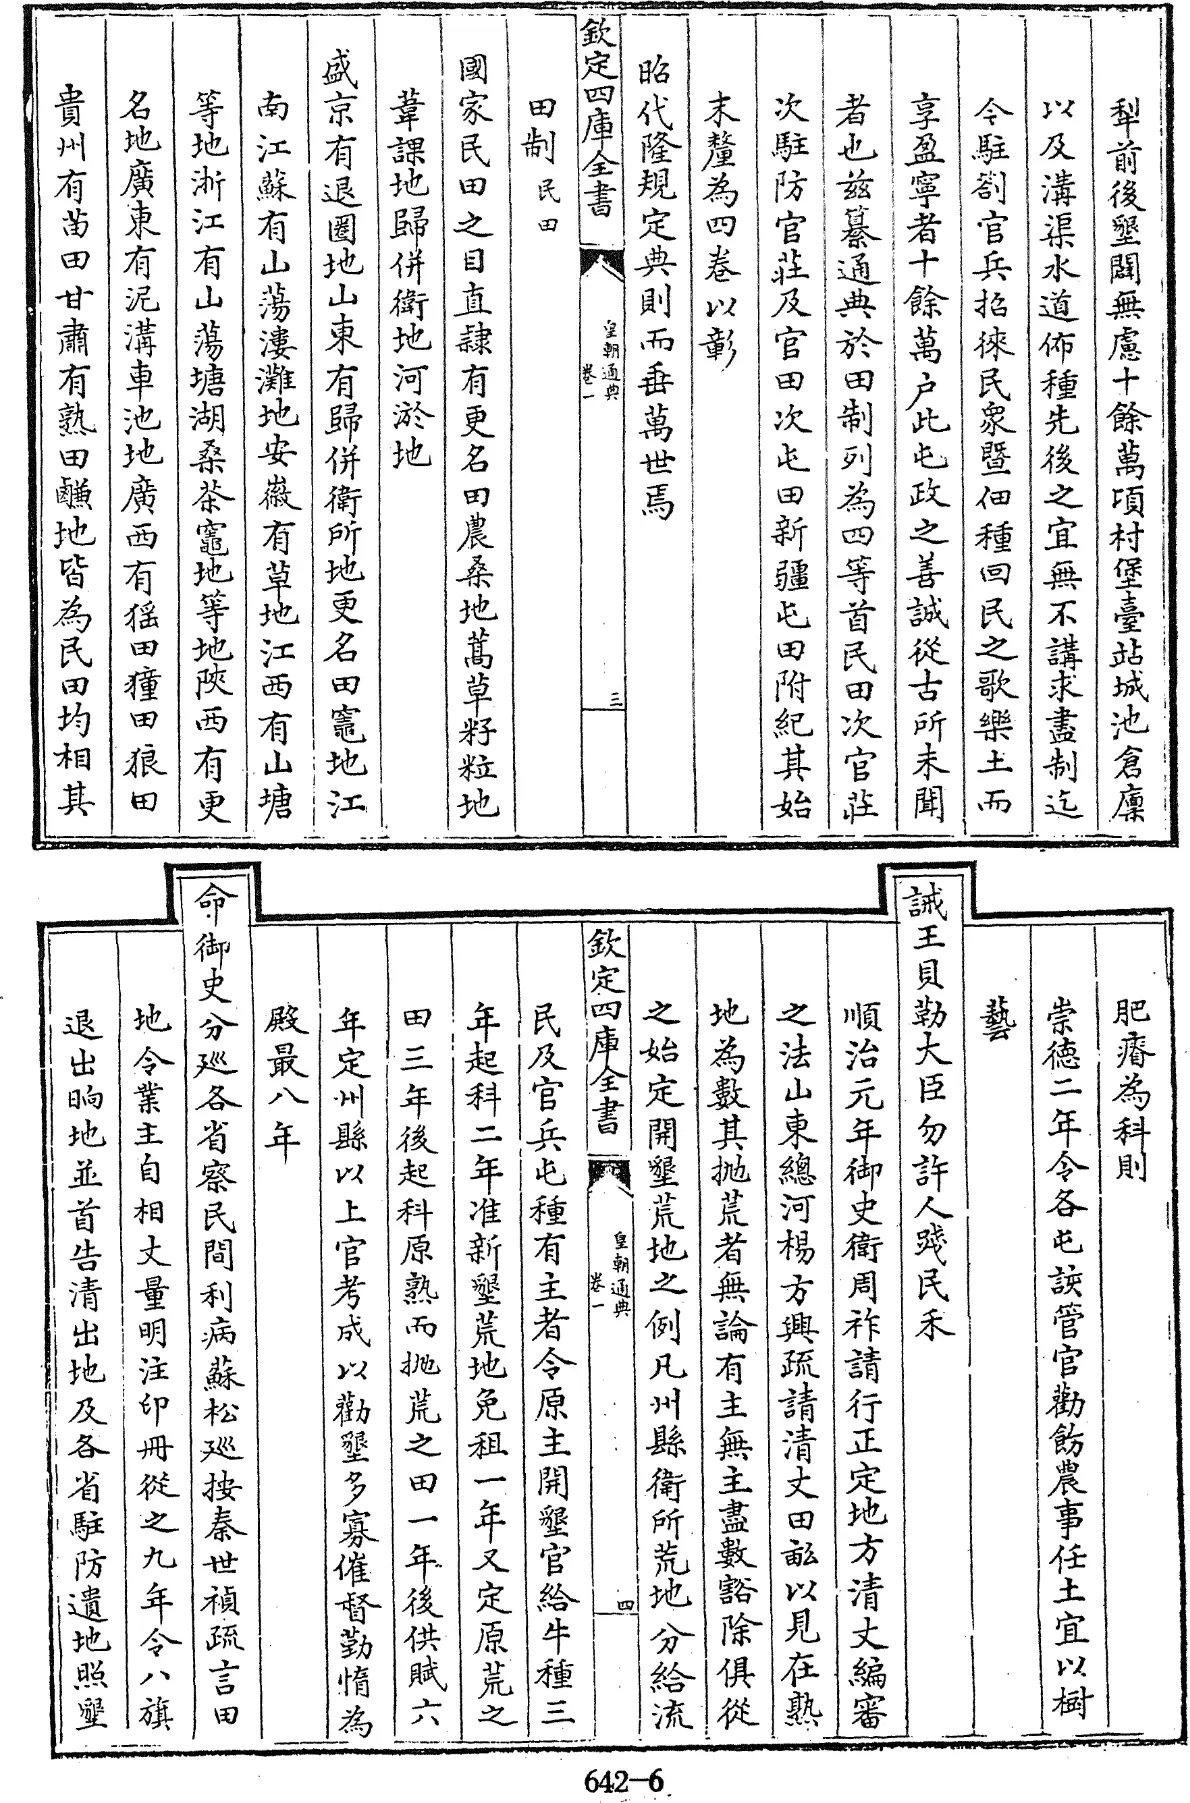 犁前後墾闢無慮十餘萬頃村堡臺站城池倉廪
以及溝渠水道佈種先後之宜無不講求盡制迄
令駐劄官兵招徠民衆暨佃種回民之歌樂土而
享盈寧者十餘萬户此屯政之善誠從古所未聞
者也兹纂通典於田制列為四等首民田次官莊
次駐防官莊及官田次屯田新疆屯田附紀其始
末釐為四卷以彰
昭代隆規定典則而垂萬世焉
欽定四庫全書
皇朝通典
卷一
三
田制 民田
國家民田之目直隷有更名田農桑地蒿草籽粒地
葦課地歸併衛地河淤地
盛京有退圈地山東有歸併衛所地更名田竈地江
南江蘇有山蕩漊灘地安徽有草地江西有山塘
等地浙江有山蕩塘湖桑茶竈地等地陜西有更
名地廣東有泥溝車池地廣西有猺田獞田狼田
貴州有苗田甘肅有熟田鹻地皆為民田均相其
肥瘠為科則
崇德二年令各屯該管官勸飭農事任土宜以樹
藝
誡王貝勒大臣勿許人踐民禾
順治元年御史衛周祚請行正定地方清丈編審
之法山東總河楊方興疏請清丈田畝以見在熟
地為數其抛荒者無論有主無主盡數豁除俱從
之始定開墾荒地之例凡州縣衛所荒地分給流
欽定四庫全書
皇朝通典
卷一
四
民及官兵屯種有主者令原主開墾官給牛種三
年起科二年准新墾荒地免租一年又定原荒之
田三年後起科原熟而抛荒之田一年後供賦六
年定州縣以上官考成以勸墾多寡催督勤惰為
殿最八年
命御史分廵各省察民間利病蘇松廵按秦世禎疏言田
地令業主自相丈量明注印冊從之九年令八旗
退出晌地並首告清出地及各省駐防遺地照墾
642-6